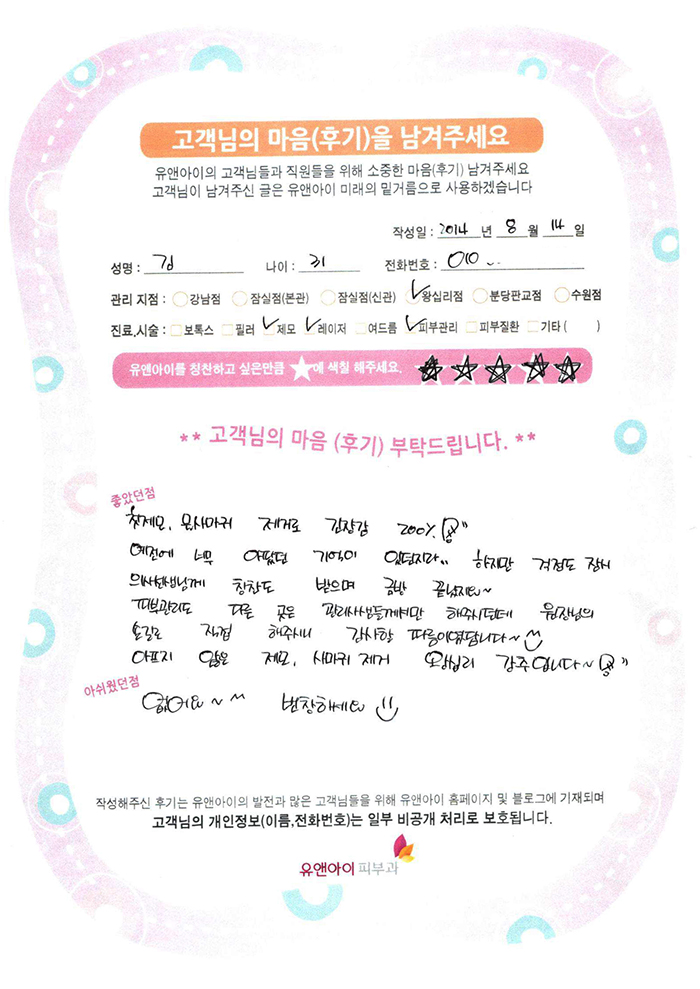 고객님의 마음(후기)을 남겨주세요
유앤아이의 고객님들과 직원들을 위해 소중한 마음(후기) 남겨주세요
고객님이 남겨주신 글은 유앤아이 미래의 밑거름으로 사용하겠습니다
작성일 : 2014 년 8 월 14 일
성명 : 김 나이 : 31 전화번호 : 010
관리 지점 : 강남점 잠실점(본관) 잠실점(신관) 왕십리점 분당판교점 수원점
진료.시술 : 보톡스 필러 제모 레이저 여드름 피부관리 피부질환 기타 ( )
유앤아이를 칭찬하고 싶은만큼 ★에 색칠 해주세요.
** 고객님의 마음 (후기) 부탁드립니다. **
좋았던점
첫제모, 목사마귀 제거로 긴장감 200%
예전에 너무 아팠던 기억이 있던지라.. 하지만 걱정도 잠시
의사선생님께 칭찬도 받으며 금방 끝났지요~
피부관리도 다른 곳은 관리사쌤들께서만 해주시던데 원장님의
손길로 직접 해주시니 감사할 따름이였답니다~
아프지 않은 제모, 사마귀 제거 왕십리 강추입니다~
아쉬웠던점
없어요~ ^^ 번창하세요
작성해주신 후기는 유앤아이의 발전과 많은 고객님들을 위해 유앤아이 홈페이지 및 블로그에 기재되며
고객님의 개인정보(이름,전화번호)는 일부 비공개 처리로 보호됩니다.
유앤아이 피부과